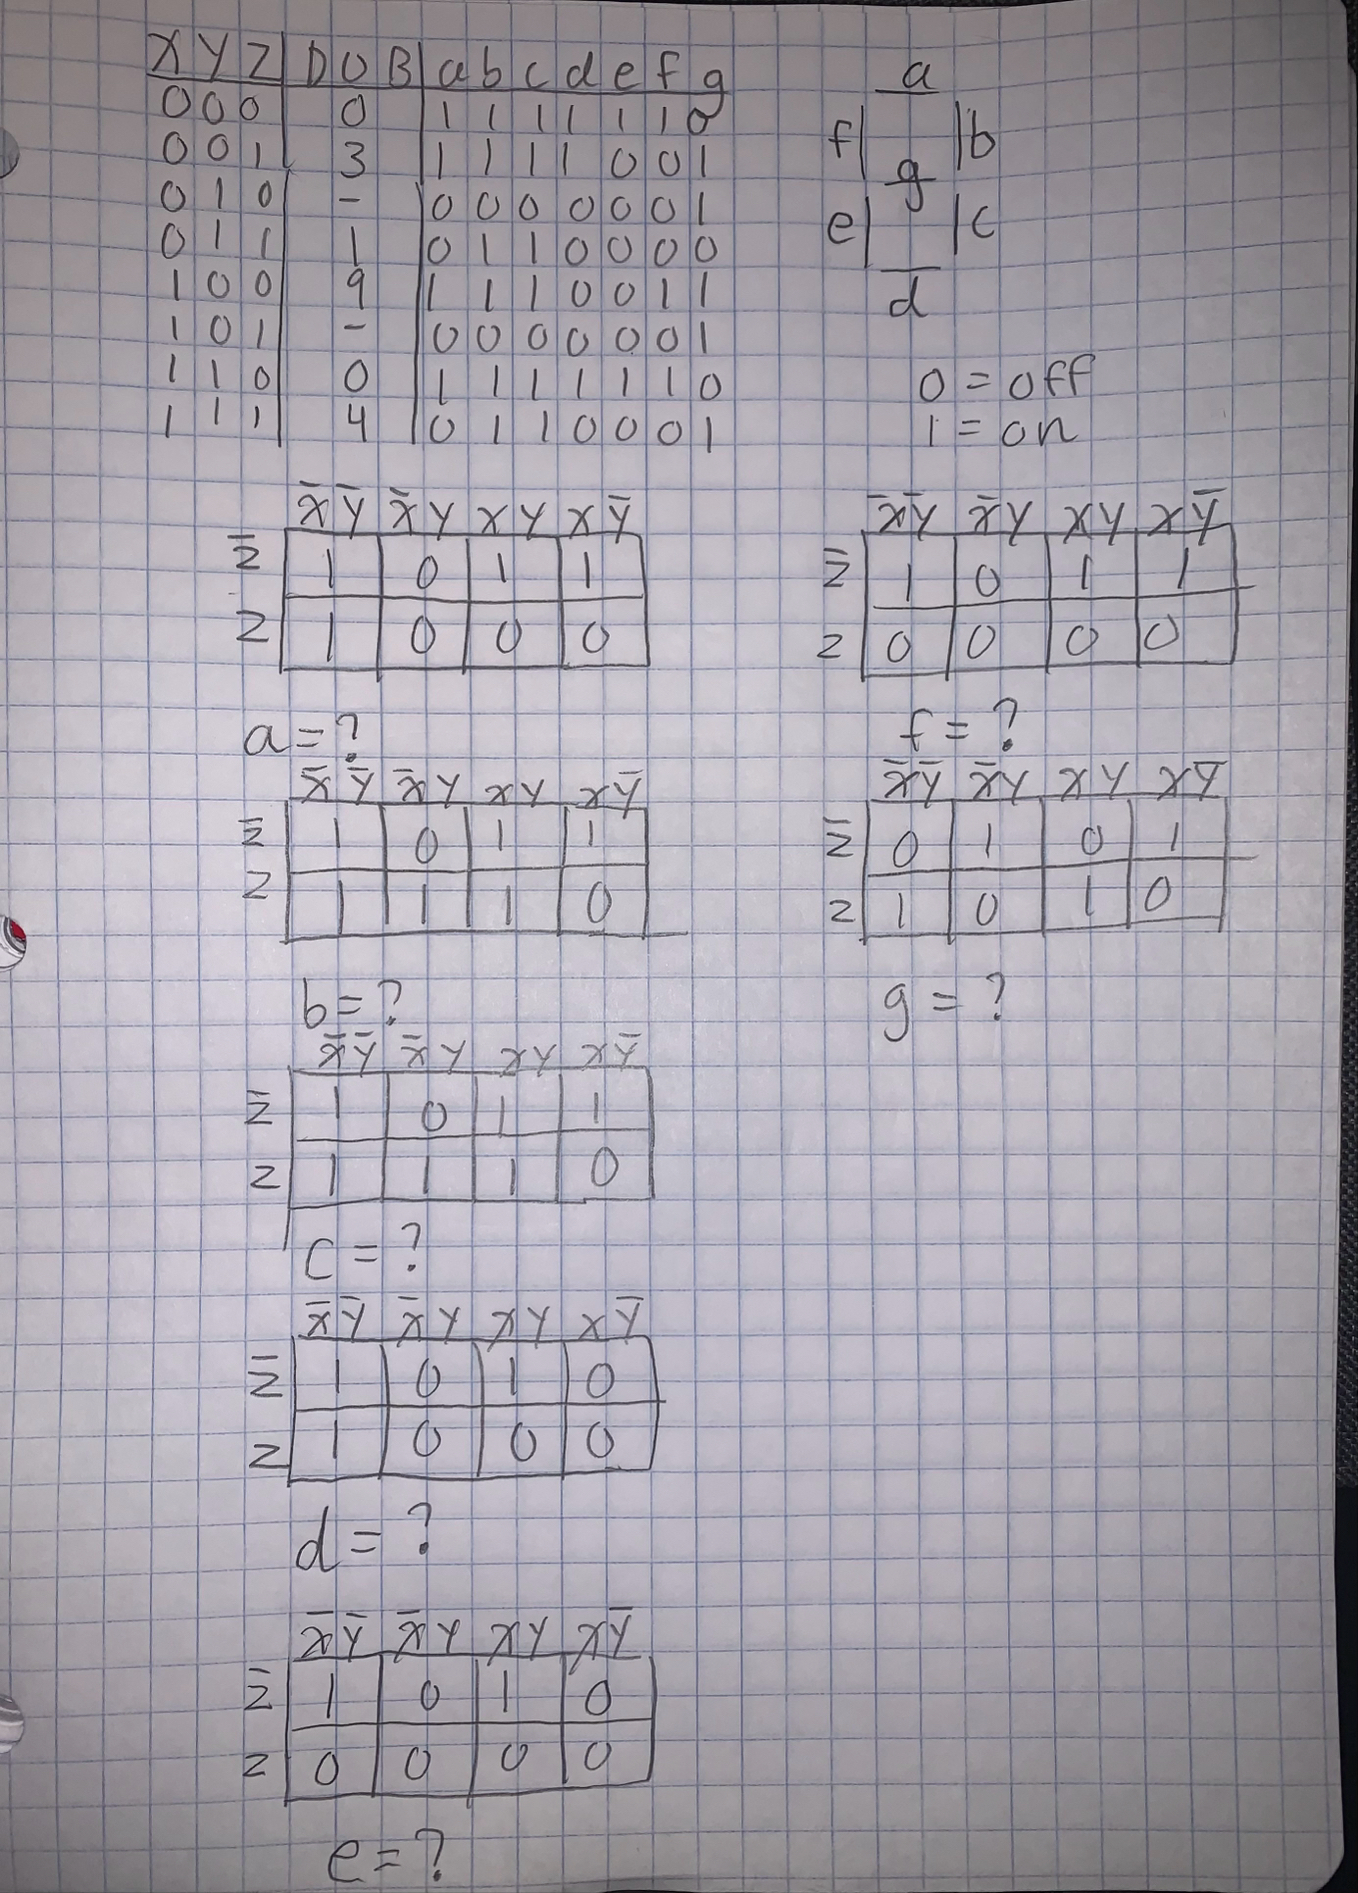 X Y Z D O B a b c d e f g
0 0 0 0 1 1 1 1 1 1 0
0 0 1 3 1 1 1 1 0 0 1
0 1 0 - 0 0 0 0 0 0 1
0 1 1 1 0 1 1 0 0 0 0
1 0 0 9 1 1 1 0 0 1 1
1 0 1 - 0 0 0 0 0 0 1
1 1 0 0 1 1 1 1 1 1 0
1 1 1 4 0 1 1 0 0 0 1
a
f b
g
e c
d
0 = off
1 = on
X̅Y̅ X̅Y XY XY̅
Z̅ 1 0 1 1
Z 1 0 0 0
a = ?
X̅Y̅ X̅Y XY XY̅
Z̅ 1 0 1 1
Z 1 1 1 0
b = ?
X̅Y̅ X̅Y XY XY̅
Z̅ 1 0 1 1
Z 1 1 1 0
C = ?
X̅Y̅ X̅Y XY XY̅
Z̅ 1 0 1 0
Z 1 0 0 0
d = ?
X̅Y̅ X̅Y XY XY̅
Z̅ 1 0 1 0
Z 0 0 0 0
e = ?
X̅Y̅ X̅Y XY XY̅
Z̅ 1 0 1 1
Z 0 0 0 0
f = ?
X̅Y̅ X̅Y XY XY̅
Z̅ 0 1 0 1
Z 1 0 1 0
g = ?